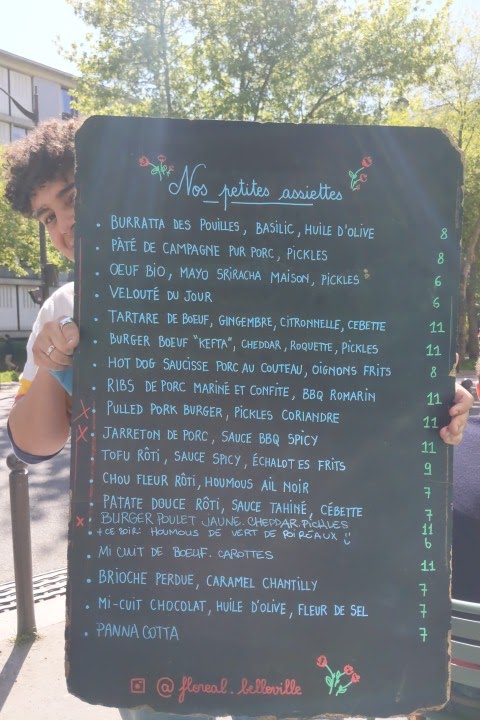 Nos petites assiettes
• BURRATTA DES POUILLES, BASILIC, HUILE D'OLIVE 8
• PÂTÉ DE CAMPAGNE PUR PORC, PICKLES 8
• OEUF BIO, MAYO SRIRACHA MAISON, PICKLES 6
• VELOUTÉ DU JOUR 6
• TARTARE DE BOEUF, GINGEMBRE, CITRONNELLE, CEBETTE 11
• BURGER BOEUF "KEFTA", CHEDDAR, ROQUETTE, PICKLES 11
• HOT DOG SAUCISSE PORC AU COUTEAU, OIGNONS FRITS 8
• RIBS DE PORC MARINÉ ET CONFITE, BBQ ROMARIN 11
X PULLED PORK BURGER, PICKLES CORIANDRE 11
X JARRETON DE PORC, SAUCE BBQ SPICY 11
• TOFU RÔTI, SAUCE SPICY, ÉCHALOTES FRITS 9
• CHOU FLEUR RÔTI, HOUMOUS AIL NOIR 7
• PATATE DOUCE RÔTI, SAUCE TAHINÉ, CÉBETTE 7
X BURGER POULET JAUNE. CHEDDAR. PICKLES 11
• + CE SOIR: HOUMOUS DE VERT DE POIREAUX !! 6
• MI CUIT DE BOEUF. CAROTTES 11
• BRIOCHE PERDUE, CARAMEL CHANTILLY 7
• MI-CUIT CHOCOLAT, HUILE D'OLIVE, FLEUR DE SEL 7
• PANNA COTTA 7
@floreal.belleville